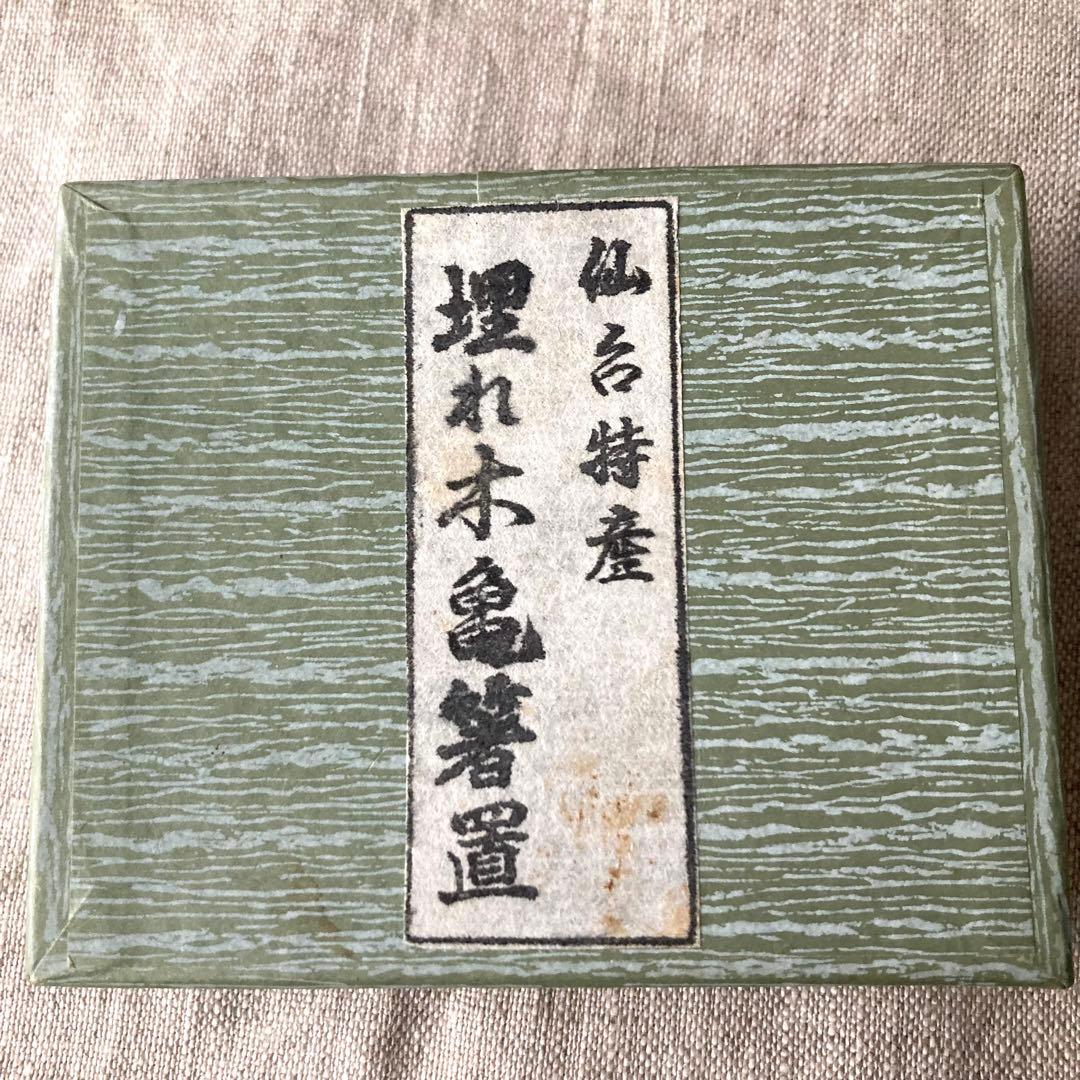 仙台特産
埋れ木亀箸置